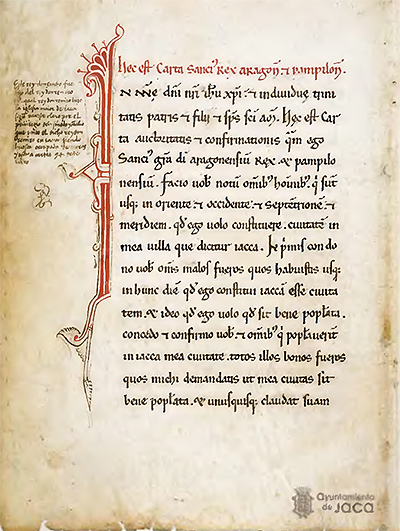 hec est Carta Sancii Rex aragoñ. et pampiloñ.
IN Nñe dñi ñri ihu xpi. et individue trini
tatis patris et filii et sps sci am̃. Hec est Car
ta auctoritatis et confirmationis qm̃ ego
Sanci' gr̃a dĩ aragonensium Rex. et pampilo
nensium. facio vob' notũ om̃ib' hoĩnib'. q̃ sũt
usq; in oriente et occidente. et Septentrionẽ et
meridiem. qd' ego volo constituere. civitatẽ in
mea villa que dicitur iacca. In p'mis con do
no vob' om̃s malos fueros quos habuistis usq;
in hunc diẽ qd' ego constitui iaccã esse civita
tem. et ideo qd' ego volo qd' sit bene pop'lata.
concedo et confirmo vob'. et om̃ib' q' pop'laverĩt
in iacca mea civitate. totos illos bonos fueros
quos michi demandatis ut mea civitas sit
bene pop'lata. et unusquisq; claudat suam
Ayuntamiento
de Jaca